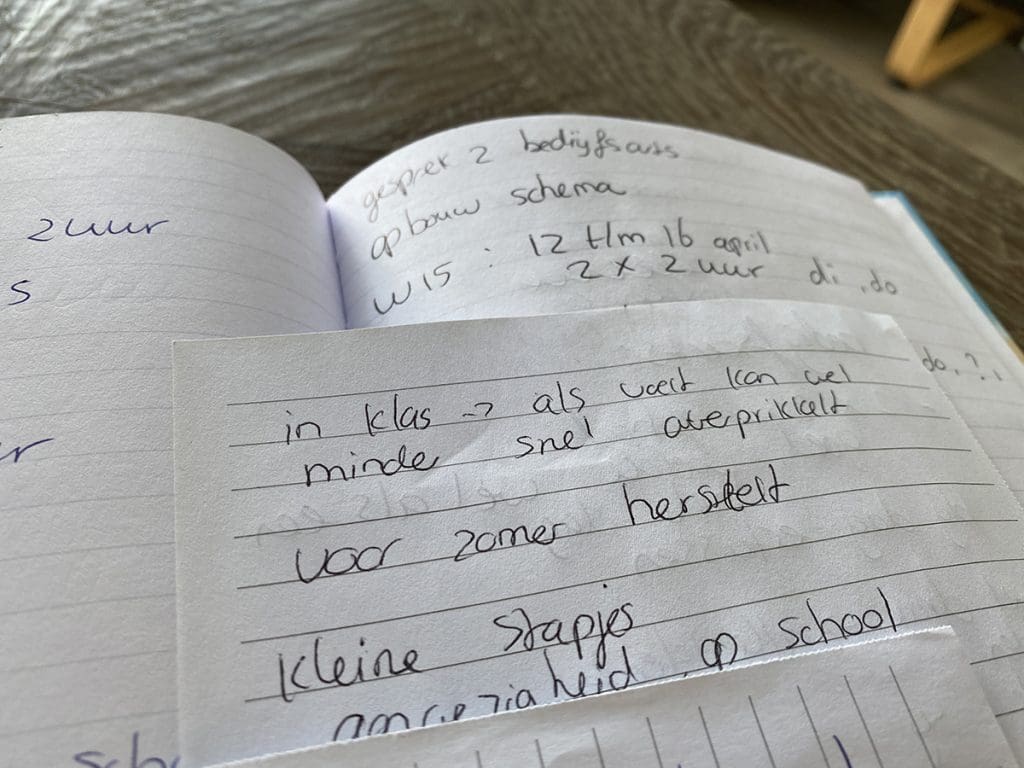 2 uur
s
gesprek 2 bedrijfsarts
opbouw schema
W15 : 12 t/m 16 april
2 x 2 uur di, do
do, ?,
in klas -> als voert kan wel
minder snel overprikkelt
voor zomer herstelt
Kleine stapjes
op school